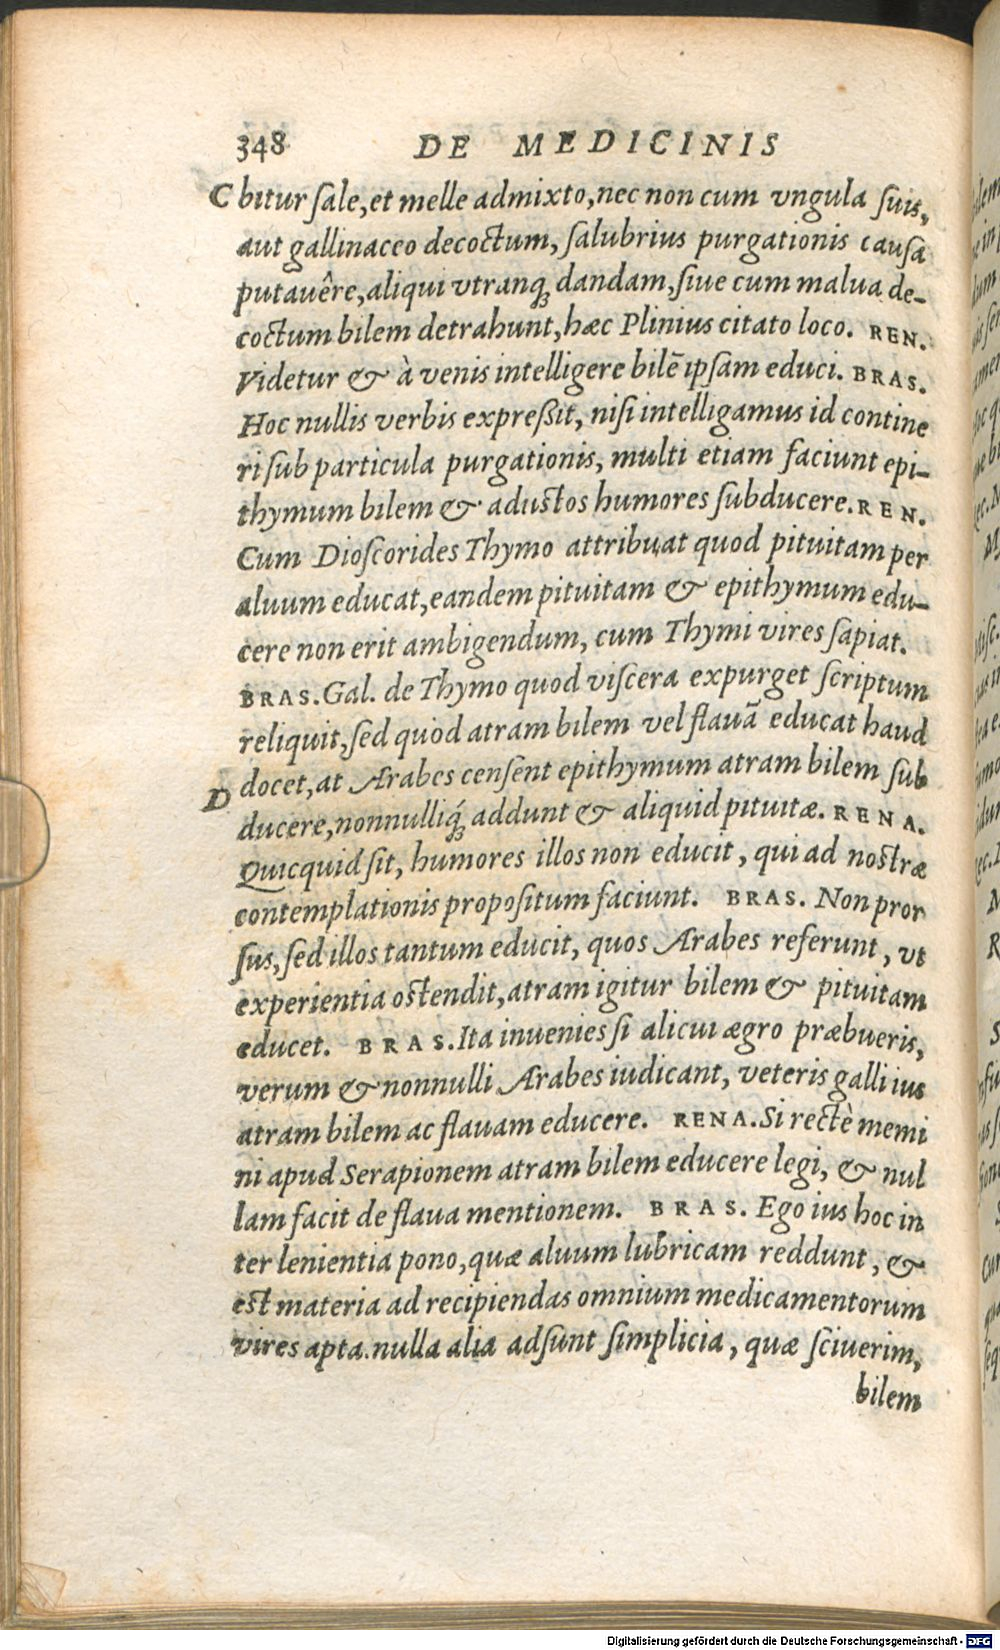 348 DE MEDICINIS
C bitur ſale, et melle admixto, nec non cum vngula ſuis,
aut gallinaceo decoctum, ſalubrius purgationis cauſa
putauêre, aliqui vtranq́; dandam, ſiue cum malua de-
coctum bilem detrahunt, hæc Plinius citato loco. REN.
Videtur & à venis intelligere bilē ipſam educi. BRAS.
Hoc nullis verbis expreßit, niſi intelligamus id contine
ri ſub particula purgationis, multi etiam faciunt epi-
thymum bilem & aduſtos humores ſubducere. REN.
Cum Dioſcorides Thymo attribuat quod pituitam per
aluum educat, eandem pituitam & epithymum edu-
cere non erit ambigendum, cum Thymi vires ſapiat.
BRAS. Gal. de Thymo quod viſcera expurget ſcriptum
reliquit, ſed quod atram bilem vel flauā educat haud
docet, at Arabes cenſent epithymum atram bilem ſub
D
ducere, nonnulliq́; addunt & aliquid pituitæ. RENA.
Quicquid ſit, humores illos non educit, qui ad noſtræ
contemplationis propoſitum faciunt. BRAS. Non pror
ſus, ſed illos tantum educit, quos Arabes referunt, vt
experientia oſtendit, atram igitur bilem & pituitam
educet. BRAS. Ita inuenies ſi alicui ægro præbueris,
verum & nonnulli Arabes iudicant, veteris galli ius
atram bilem ac flauam educere. RENA. Si rectè memi
ni apud Serapionem atram bilem educere legi, & nul
lam facit de flaua mentionem. BRAS. Ego ius hoc in
ter lenientia pono, quæ aluum lubricam reddunt, &
eſt materia ad recipiendas omnium medicamentorum
vires apta. nulla alia adſunt ſimplicia, quæ ſciuerim,
bilem
Digitalisierung gefördert durch die Deutsche Forschungsgemeinschaft - DFG